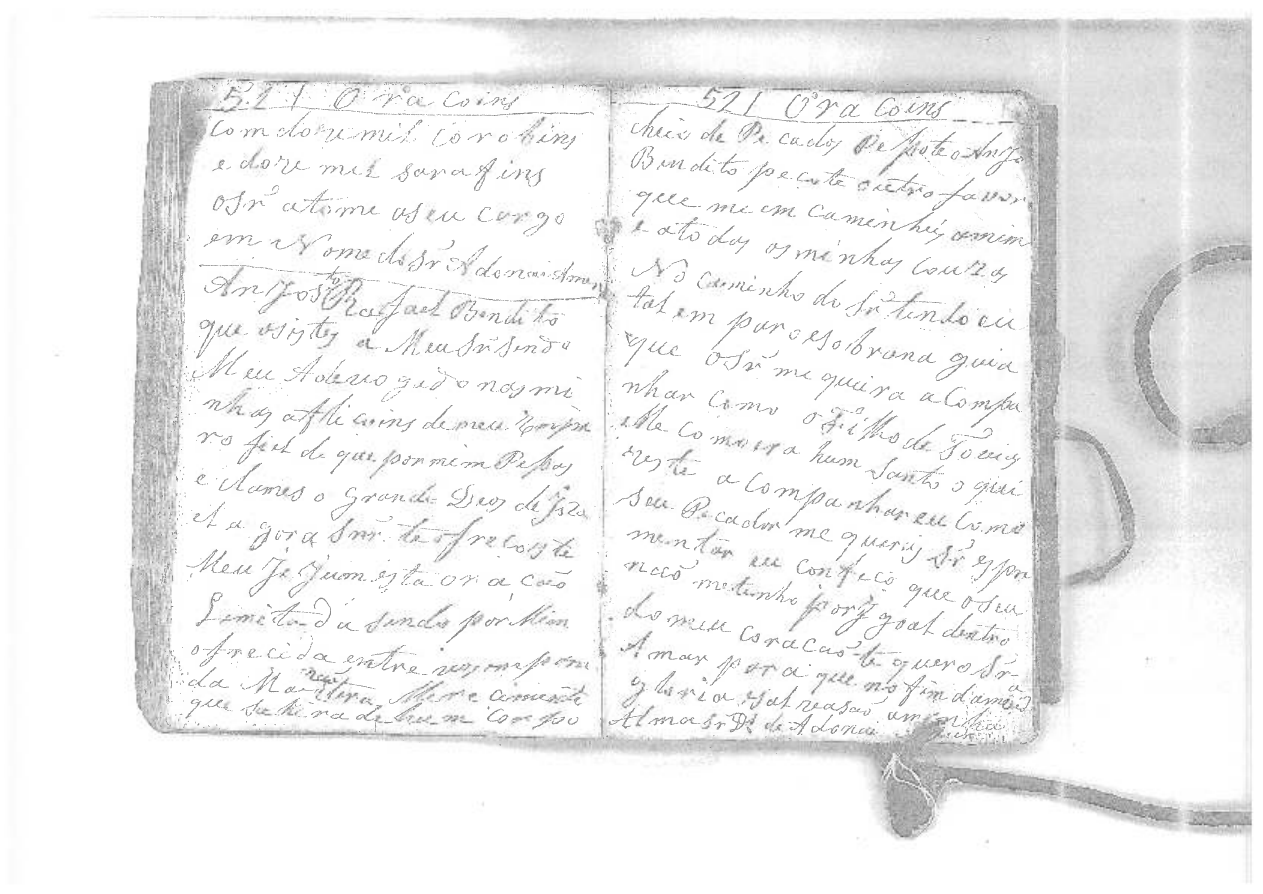 52 | Ora coins
com doze mil Corobins
e doze mil sarafins
o Sr atome oseu Corgo
em Nome do Sr Adonai Amen
Anjo Sto Rafael Bendito
que osistes a Meu Sr sendo
Meu Adevogado nas mi
nhas aflicoins de meu
ro fiel de que por mim Pesas
e clames o Grande Deos de Jzra
el a gora Snr te ofrecoiste
Meu Jejum esta oracaõ
Limetada sendo por Mim
ofrecida entre
da não tera Merecimento
que sahira de hum Corpo
521 Ora coins
cheio de Pecados Anjo
Bendito pecote outro favor
que me em Caminheis amim
e ato das os minhas Couzas
No Caminho do Sr tendo eu
tal em paro e sobrana guia
que o Sr me queira aCompa
nhar Como o Filho de Tobias
elle Como era hum Santo o qui
zeste aCompanhar eu Como
sou Pecador me quereis Sr
mentar eu Confeço que o seu
nacõ metenho por Jgoal dentro
do meu Coracaõ te quero Sr
Amar para que no fim
gloria salvasaõ
Alma Sr Ds de Adonai